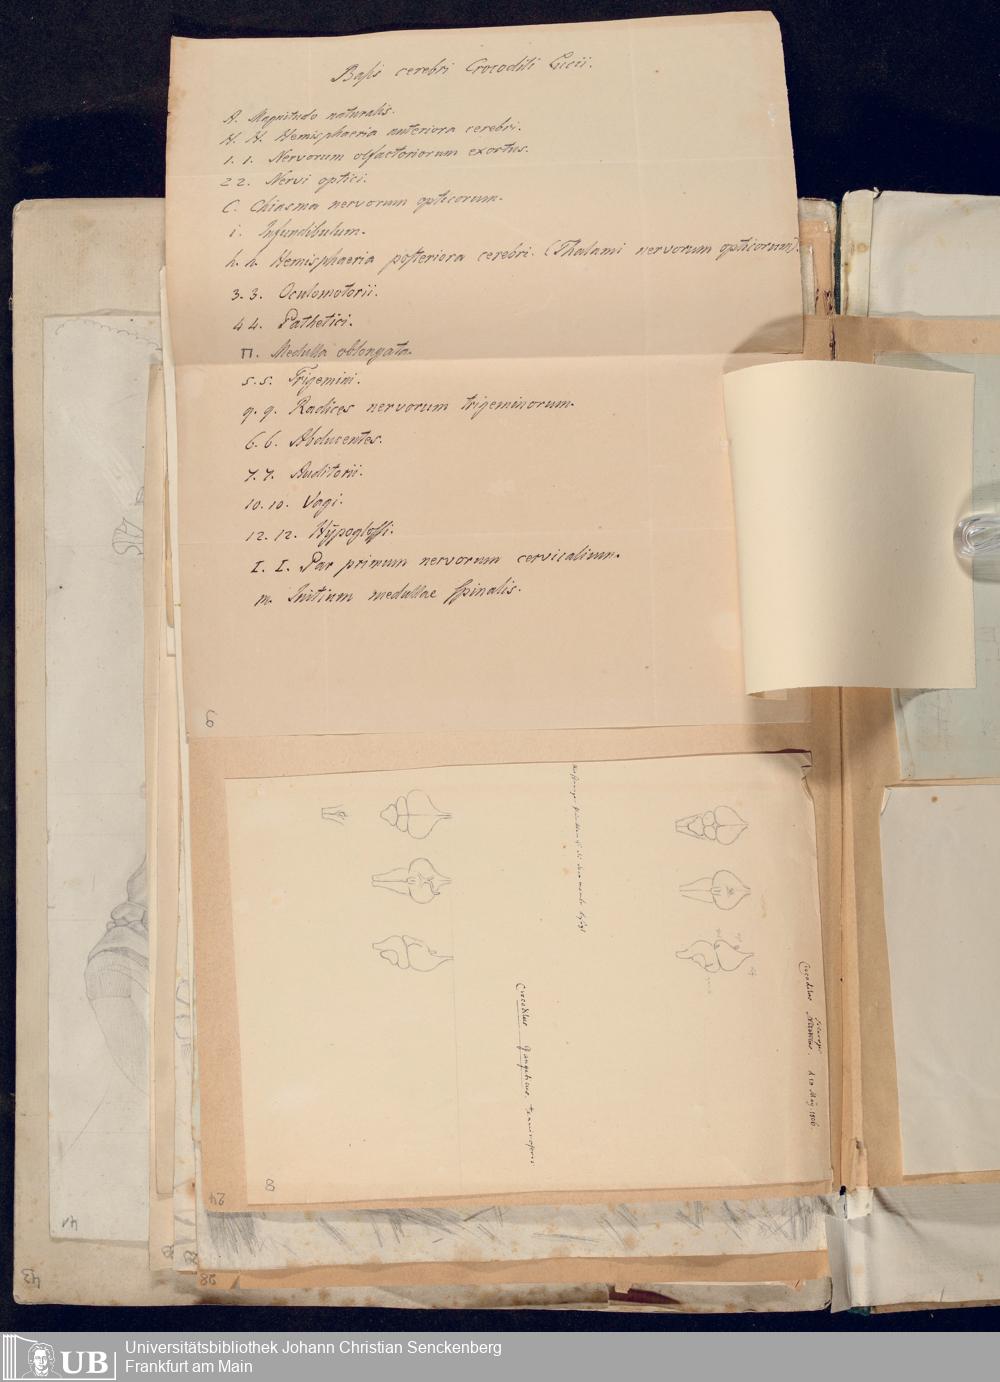 Basis cerebri Crocodili Lucii.
A. Magnitudo naturalis.
H. H. Hemisphaeria anteriora cerebri.
1. 1. Nervorum olfactoriorum exortus.
2 2. Nervi optici.
C. Chiasma nervorum opticorum.
i. Infundibulum.
h. h. Hemisphaeria posteriora cerebri. (Thalami nervorum opticorum).
3. 3. Oculomotorii.
4 4. Pathetici.
Π. Medulla oblongata.
5. 5. Trigemini.
q. q. Radices nervorum trigeminorum.
6. 6. Abducentes.
7. 7. Auditorii.
10. 10. Vagi.
12. 12. Hypoglossi.
I. I. Par primum nervorum cervicalium.
m. Initium medullae spinalis.
9
Crocodilus
Crocodilus gangeticus, tenuirostris
8
24
28
41
43
Universitätsbibliothek Johann Christian Senckenberg
Frankfurt am Main
UB